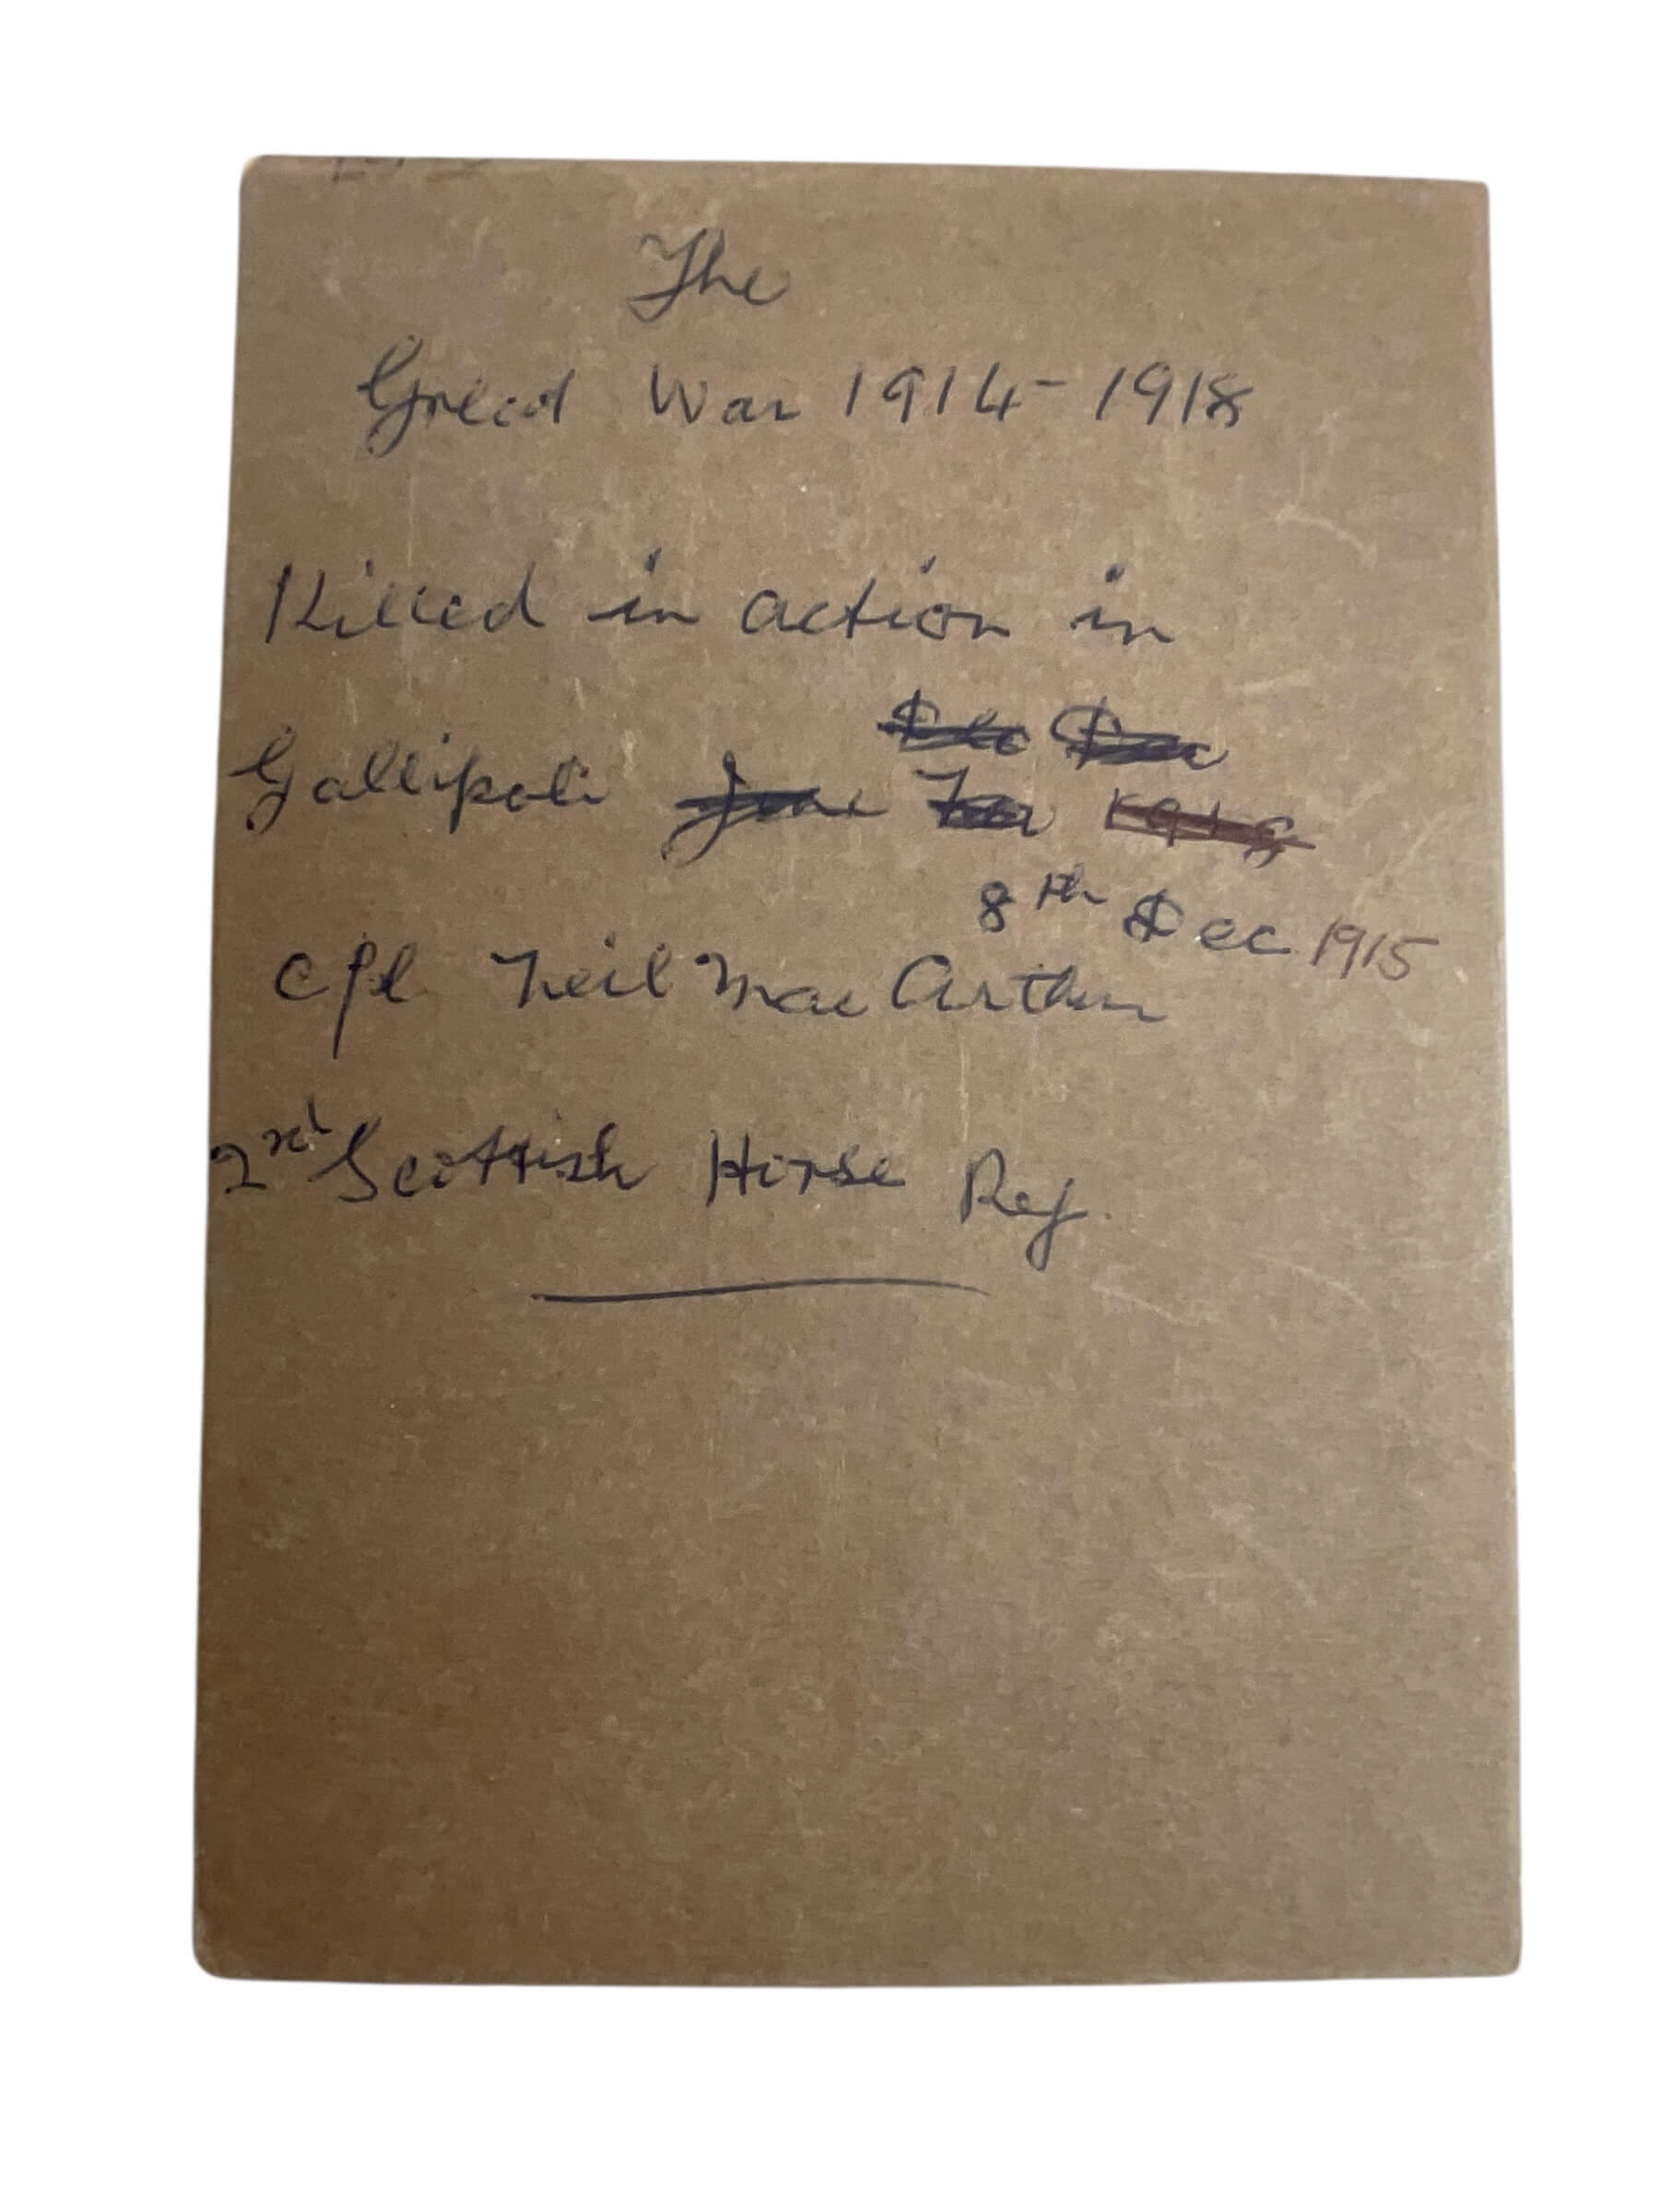 The
Great War 1914-1918
Killed in action in
Dec Dec
Gallipoli June 1918
8th Dec 1915
Cpl Neil MacArthur
2nd Scottish Horse Reg.